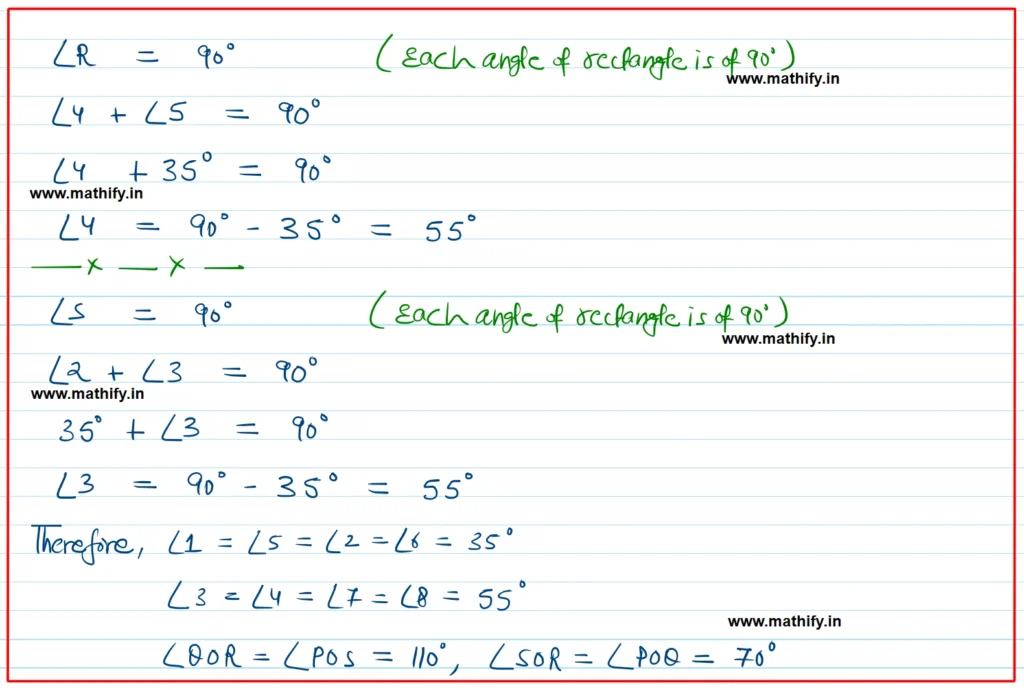 ∠R = 90° (Each angle of rectangle is of 90°)
www.mathify.in
∠4 + ∠5 = 90°
∠4 + 35° = 90°
www.mathify.in
∠4 = 90° - 35° = 55°
— x — x —
∠S = 90° (Each angle of rectangle is of 90°)
www.mathify.in
∠2 + ∠3 = 90°
www.mathify.in
35° + ∠3 = 90°
∠3 = 90° - 35° = 55°
Therefore, ∠1 = ∠5 = ∠2 = ∠6 = 35°
∠3 = ∠4 = ∠7 = ∠8 = 55°
www.mathify.in
∠QOR = ∠POS = 110°, ∠SOR = ∠POQ = 70°